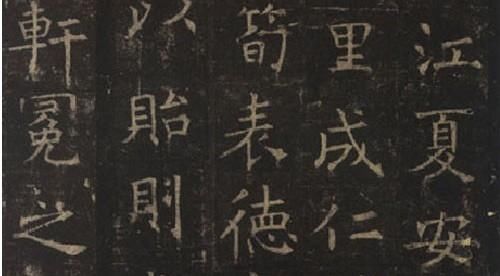 江夏安
里成仁
筍表德
以貽則
軒冕之